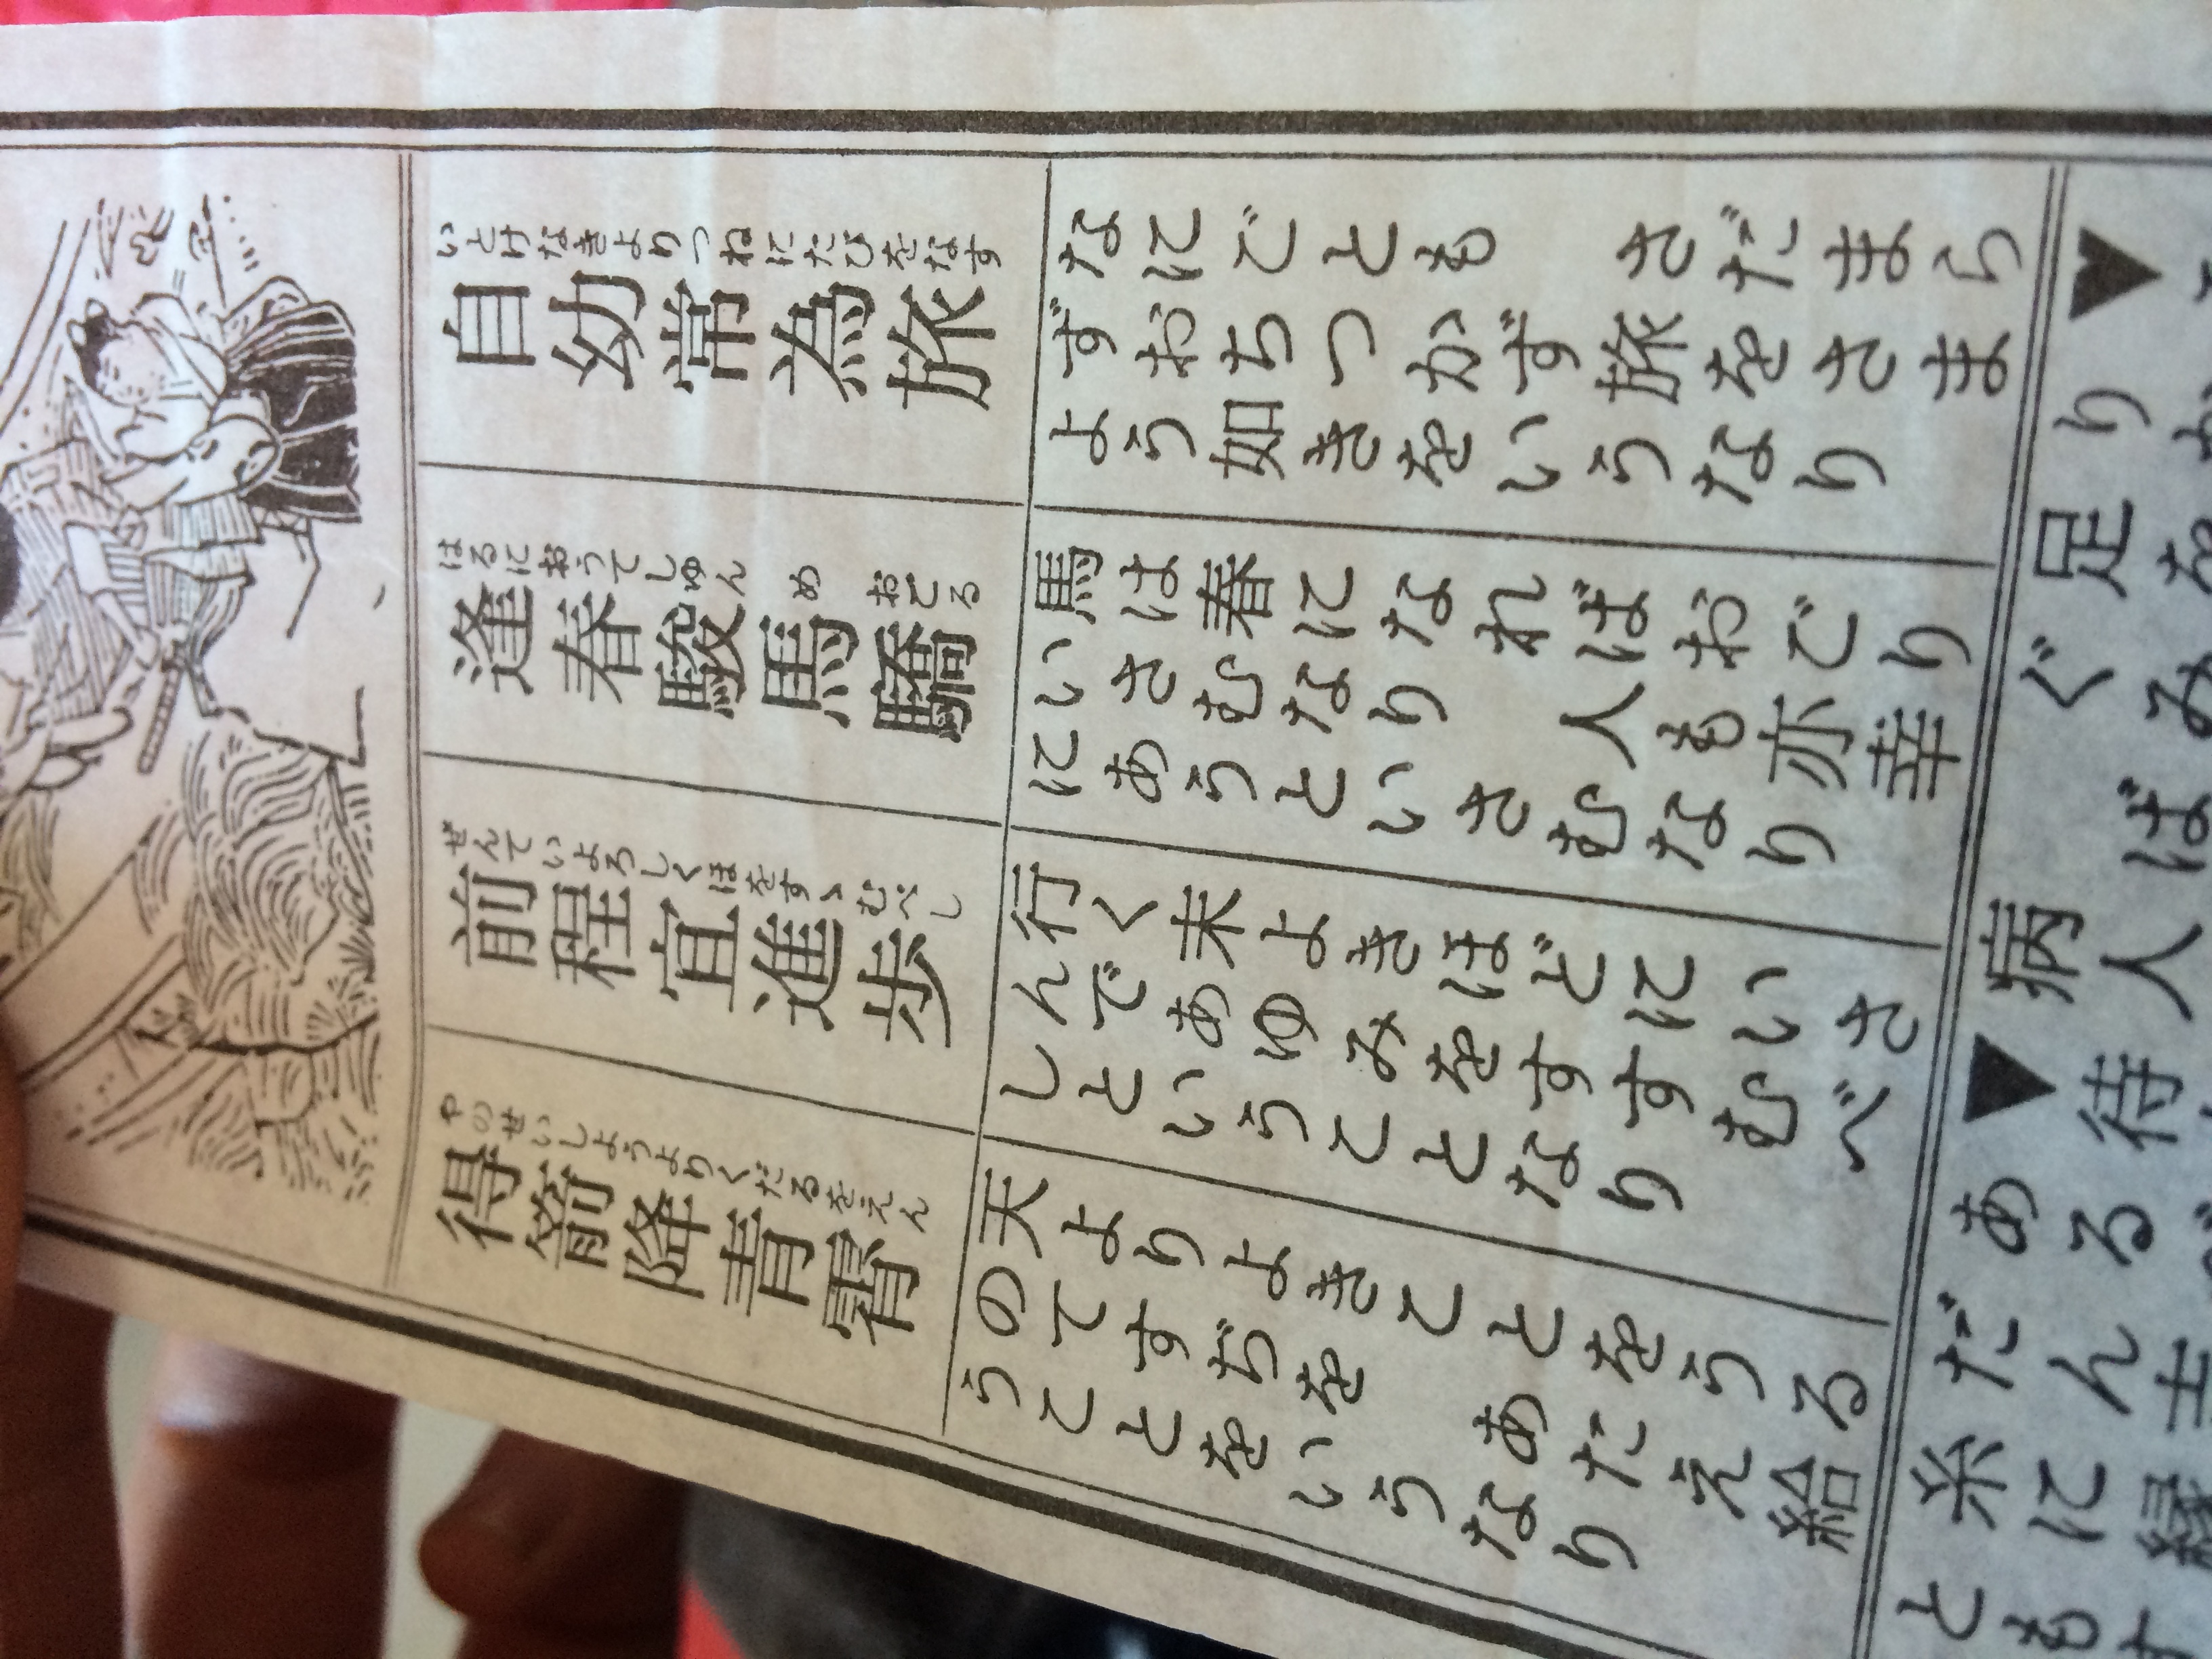 いとけなきよりつねにたびをなす
自幼常為旅
なにごとも　さだまら
ずおちつかず旅をさま
よう如きをいうなり
はるにおうてしゅんめおごる
逢春駿馬驕
馬は春になればおどり
いさむなり　人も亦幸
にあうといさむなり
ぜんていよろしくほをすゝむべし
前程宜進歩
行く末よきほどにいさ
んであゆみをすすむべ
しということなり
やのせいしようよりくだるをえん
得箭降青霄
天よりよきことをうる
のてすぢを　あたえ給
うことをいうなり